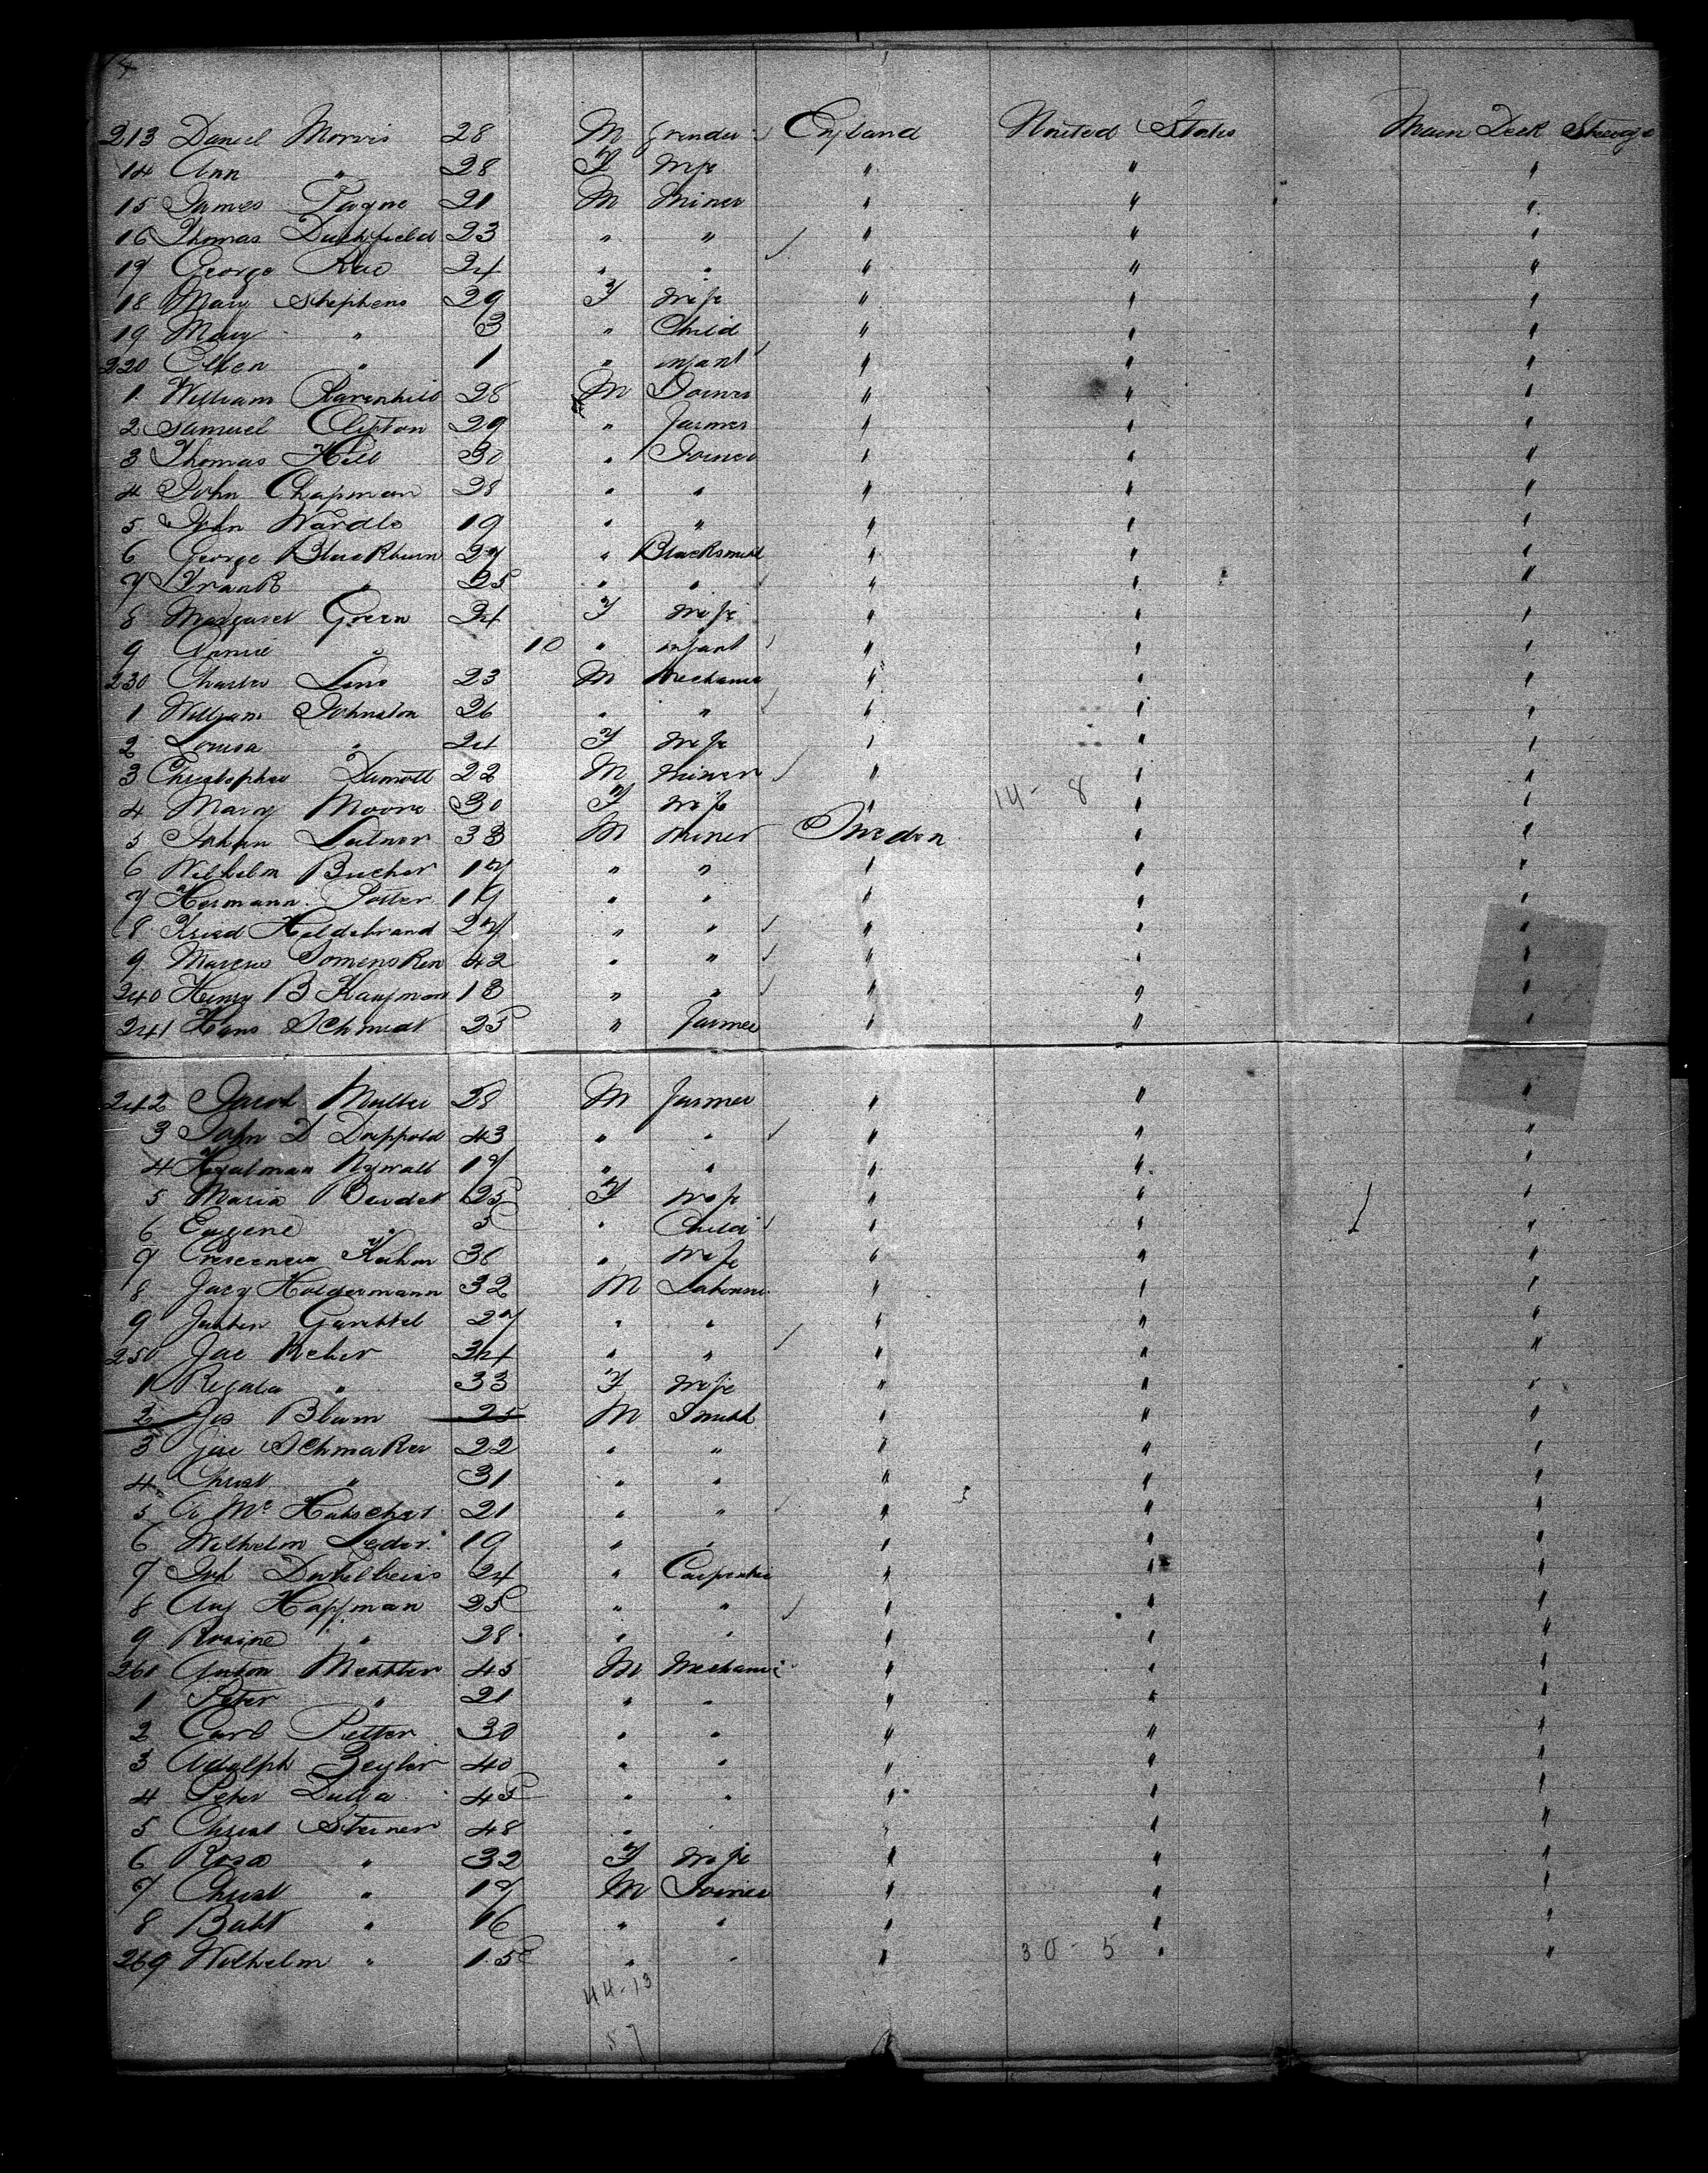 213 Daniel Morris 28 M Grinder England United States Main Deck Steerage
14 Ann " 28 F Wife " " "
15 James Payne 21 M Miner " " "
16 Thomas Duckfield 23 " " " " "
17 George Rae 24 " " " " "
18 Mary Stephens 29 F Wife " " "
19 Mary " 3 " Child " " "
220 Ellen " 1 " infant " " "
1 William Ravenhill 28 M Joiner " " "
2 Samuel Clifton 29 " Farmer " " "
3 Thomas Hill 30 " Joiner " " "
4 John Chapman 28 " " " " "
5 John Wardle 19 " " " " "
6 George Blackburn 27 " Blacksmith " " "
7 Frank " 25 " " " " "
8 Margaret Green 24 F Wife " " "
9 Annie " 10 " infant " " "
230 Charles Lane 23 M Mechanic " " "
1 William Johnston 26 " " " " "
2 Louisa " 24 F Wife " " "
3 Christopher 22 M Miner " " "
4 Mary Moore 30 F Wife " 14-8 " "
5 Johan 33 M Miner Sweden " "
6 Wilhelm Bucher 17 " " " " "
7 Hermann Potter 19 " " " " "
8 Hildebrand 27 " " " " "
9 Marcus 42 " " " " "
240 Henry B Kaufmann 18 " " " " "
241 Hans Schmidt 25 " Farmer " " "
242 Jacob Muller 28 M Farmer " " "
3 John D Dappold 43 " " " " "
4 17 " " " " "
5 Maria 25 F Wife " " "
6 Eugene " 5 " Child " " "
7 36 " Wife " " "
8 Holdermann 32 M Labourer " " "
9 27 " " " " "
250 Jac Keher 34 " " " " "
1 Regala " 33 F Wife " " "
2 Jos Blum 25 M Smith " " "
3 Jac Schmaker 22 " " " " "
4 Christ " 31 " " " " "
5 21 " " " " "
6 Wilhelm Leder 19 " " " " "
7 24 " Carpenter " " "
8 Aug Hoffman 25 " " " " "
9 Rosine " 28 " " " " "
260 Anton Mettler 45 M Mechanic " " "
1 Peter " 21 " " " " "
2 Carl Petter 30 " " " " "
3 Adolph Zeyler 40 " " " " "
4 Peter Dulla 45 " " " " "
5 Christ Steiner 48 " " " " "
6 Rosa " 32 F Wife " " "
7 Christ " 17 M Joiner " " "
8 Balt " 16 " " " " "
269 Wilhelm " 15 " " " 30-5 " "
44-13
57